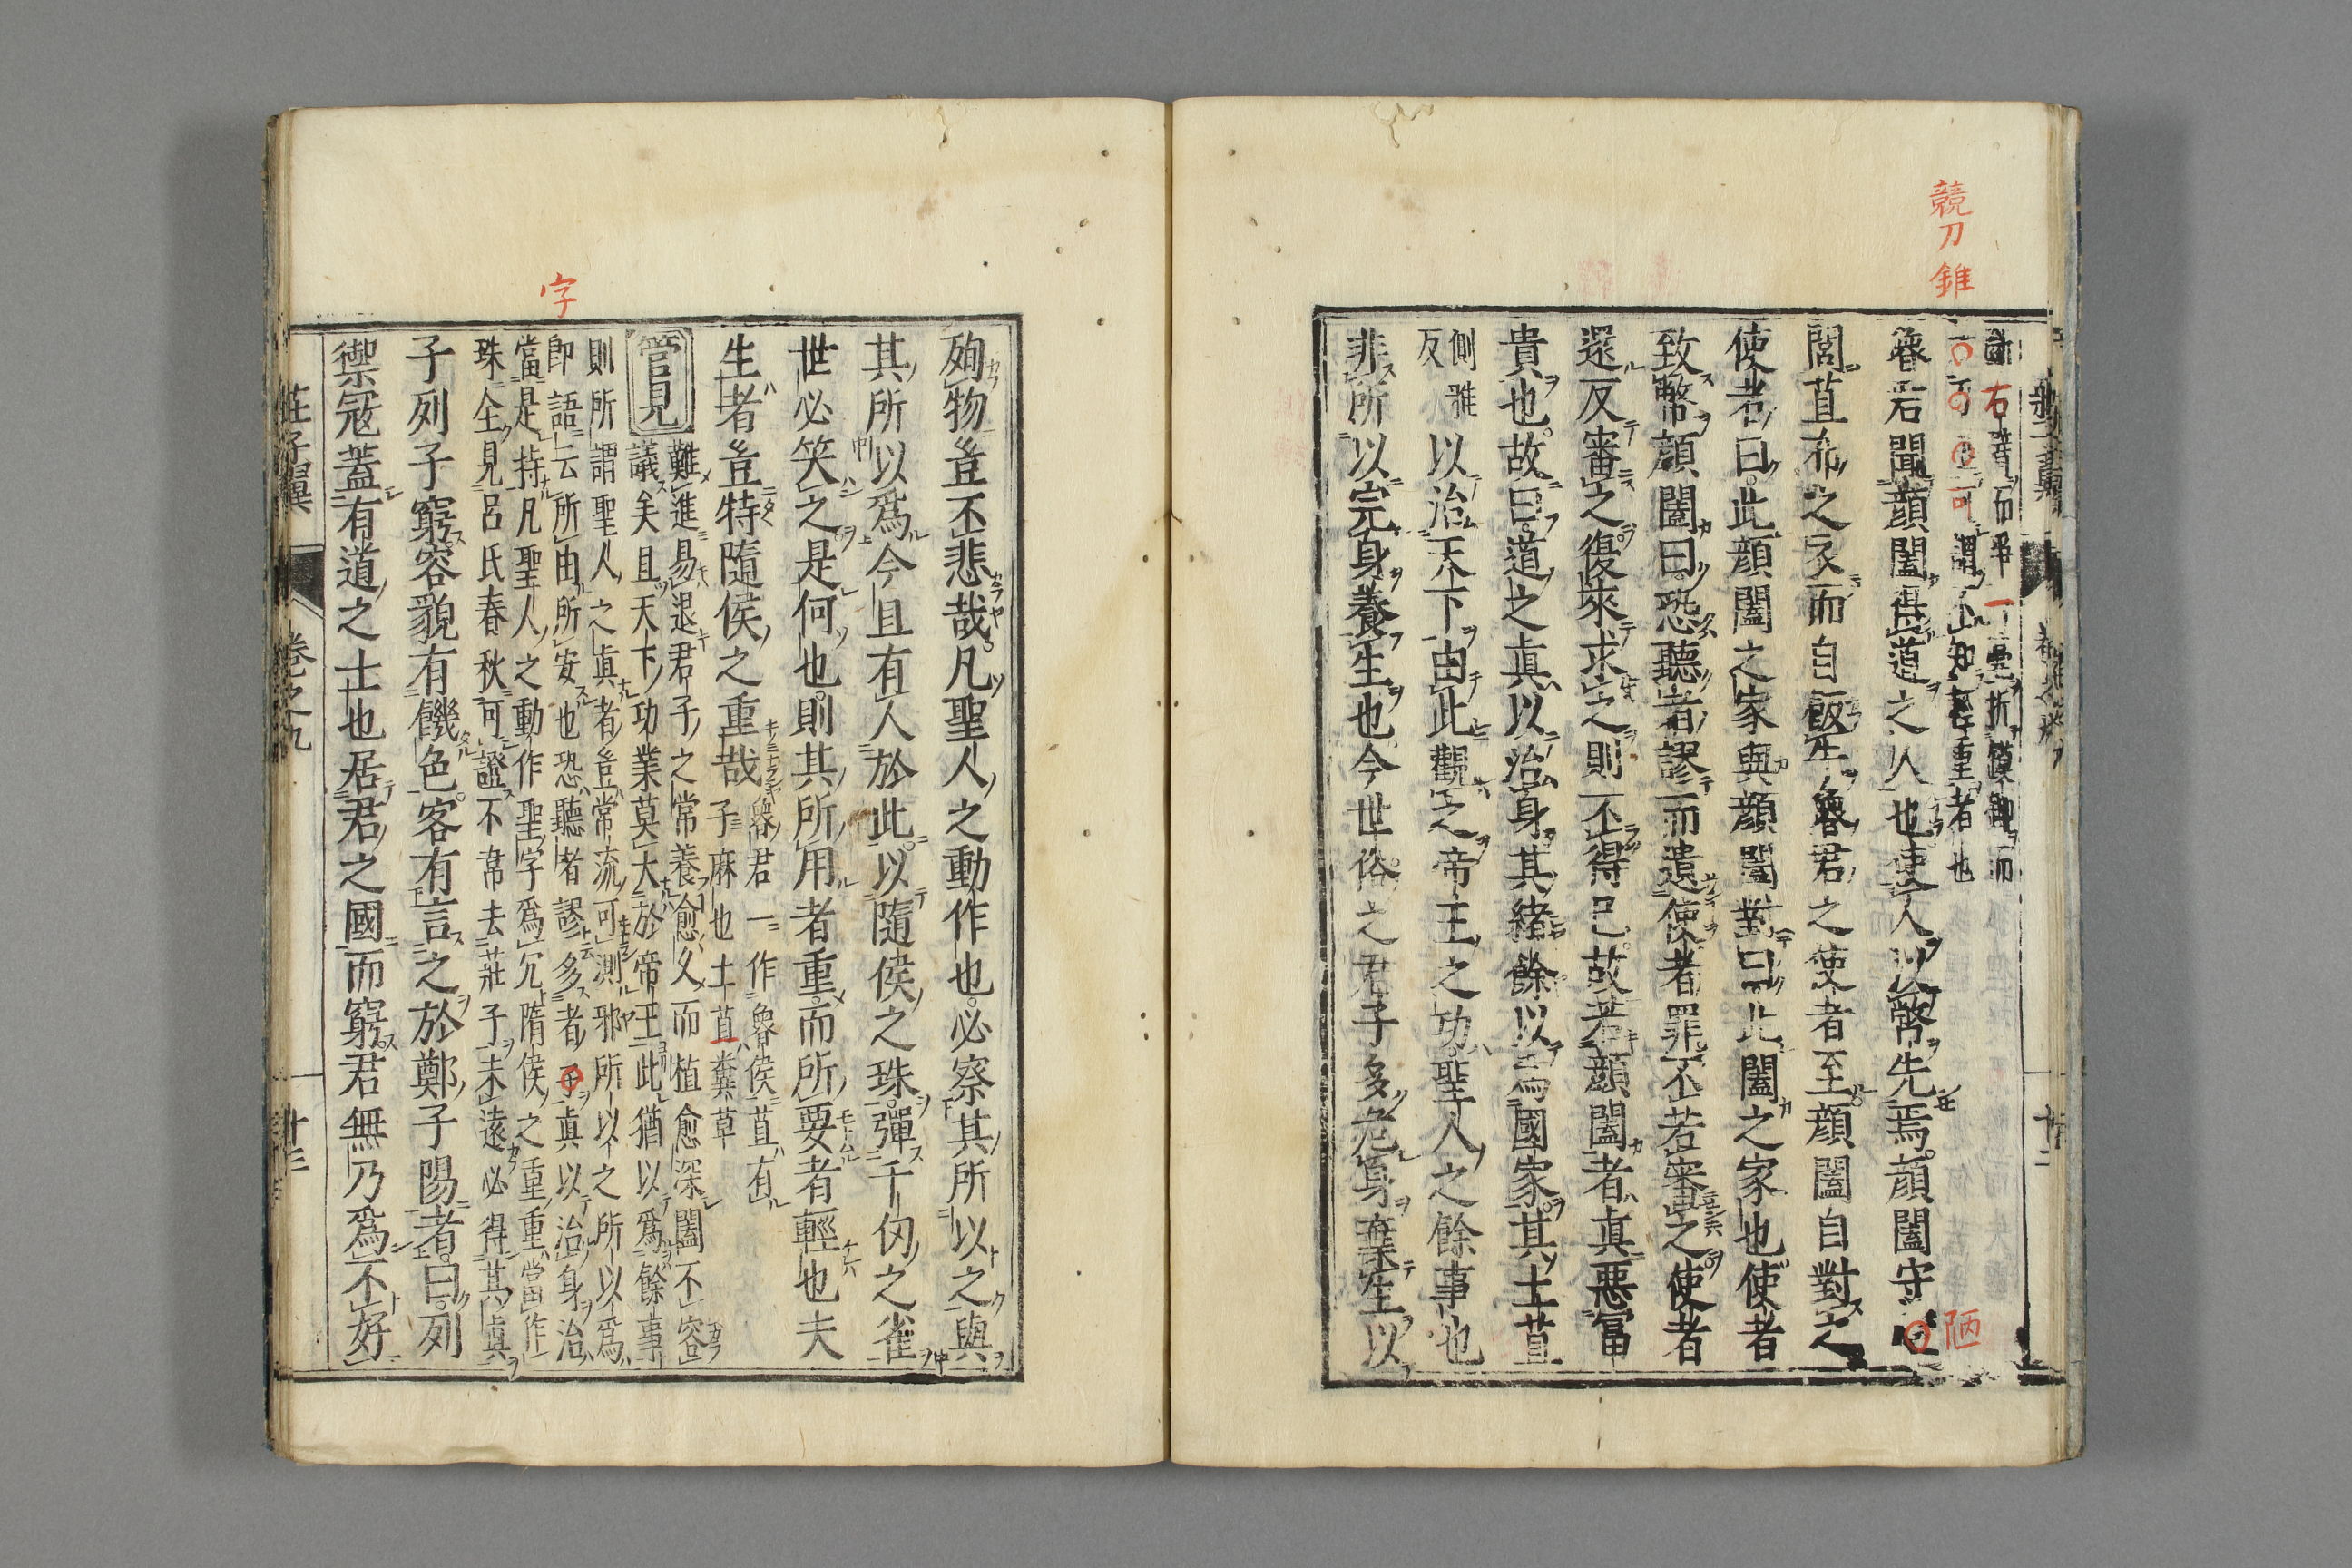 競刀錐
而
者也
魯君聞顏闔得道之人也使人以幣先焉顏闔守
陋
閭苴布之衣而自飯牛魯君之使者至顏闔自對之
使者曰此顏闔之家與顏闔對曰此闔之家也使者
致幣顏闔曰恐聽者謬而遺使者罪不若審之使者
還反審之復來求之則不得已故若顏闔者眞惡富
貴也故曰道之眞以治身其緒餘以爲國家其土苴
側雅
反
以治天下由此觀之帝王之功聖人之餘事也
非所以完身養生也今世俗之君子多危身棄生以
殉物豈不悲哉凡聖人之動作也必察其所以之與
其所以爲今且有人於此以隨侯之珠彈千仞之雀
世必笑之是何也則其所用者重而所要者輕也夫
生者豈特隨侯之重哉
魯君一作魯侯苴有
子麻也土苴糞草
管見
難進易退君子之常養愈久而植愈深闔不容
議矣且天下功業莫大於帝王此猶以爲餘事
則所謂聖人之眞者豈常流可測邪所以之所以爲
字
即語云所由所安也恐聽者謬多者字眞以治身治
當是持凡聖人之動作聖字爲冗隋侯之重重當作
珠全見呂氏春秋可證不韋去莊子未遠必得其眞
子列子窮容貌有饑色客有言之於鄭子陽者曰列
禦寇蓋有道之士也居君之國而窮君無乃爲不好
莊子翼
卷之九
十三